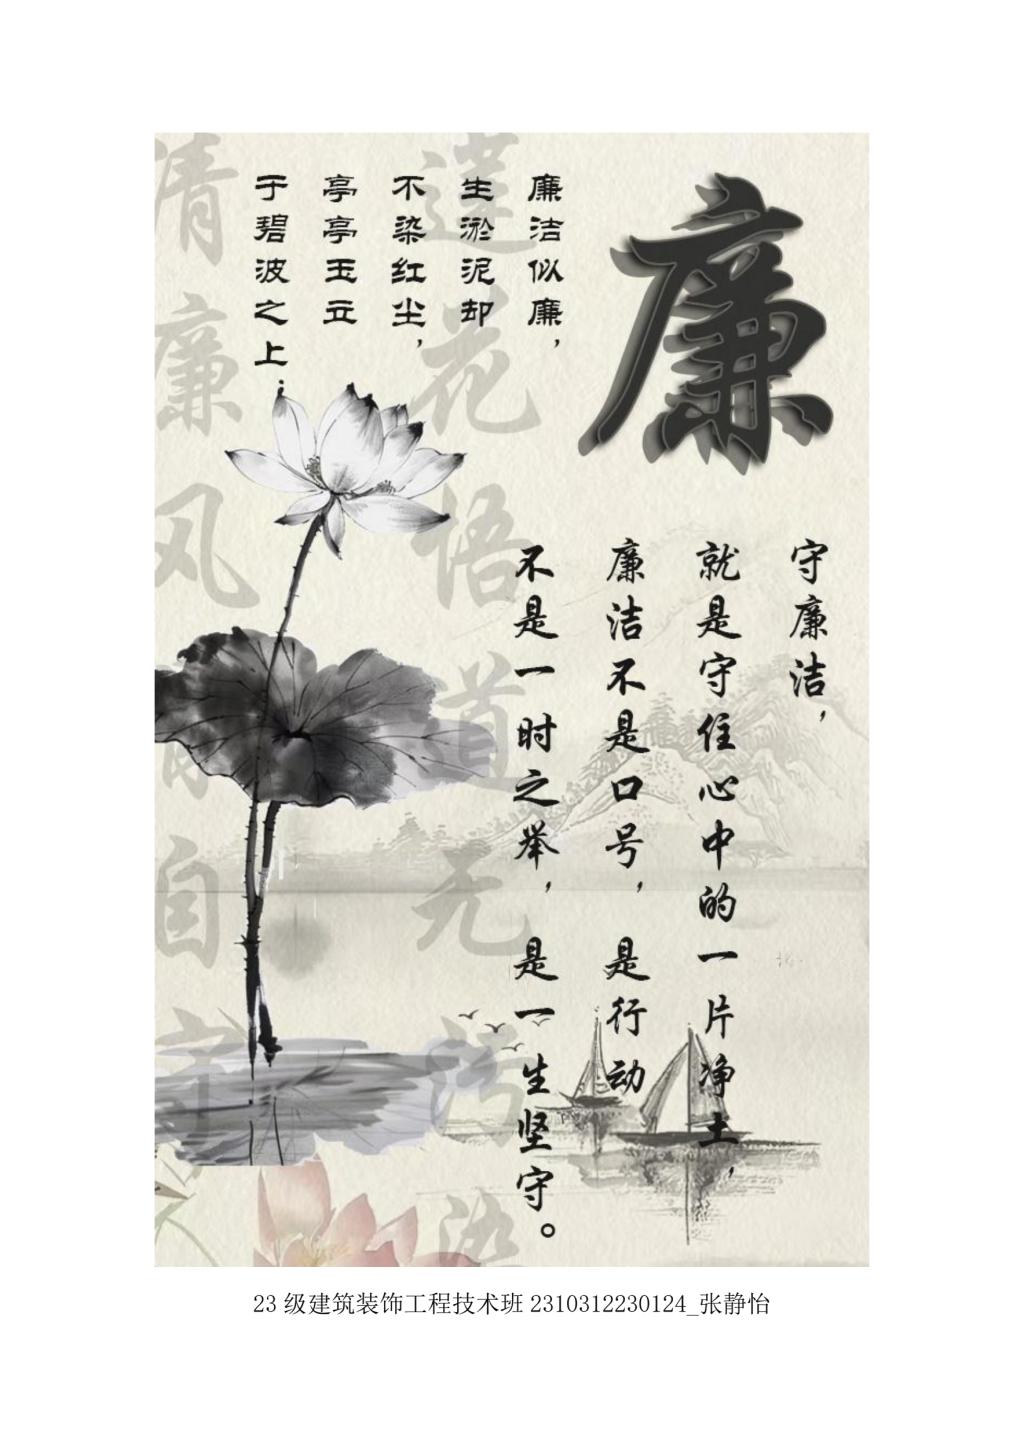 廉
廉洁似廉，
生淤泥却
不染红尘，
亭亭玉立
于碧波之上；
守廉洁，
就是守住心中的一片净土，
廉洁不是口号，是行动
不是一时之举，是一生坚守。
莲花悟道无污染
清廉风 自守
23 级建筑装饰工程技术班 2310312230124_张静怡